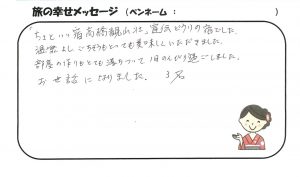 旅の幸せメッセージ （ペンネーム ： ）
「ちょといい宿高橋観山荘」宣伝どうりの宿でした。
温泉よし ごちそうもとっても美味しくいただきました。
部屋の作りもとても落ちついて 1日のんびり過ごしました。
お世話になりました。 3名